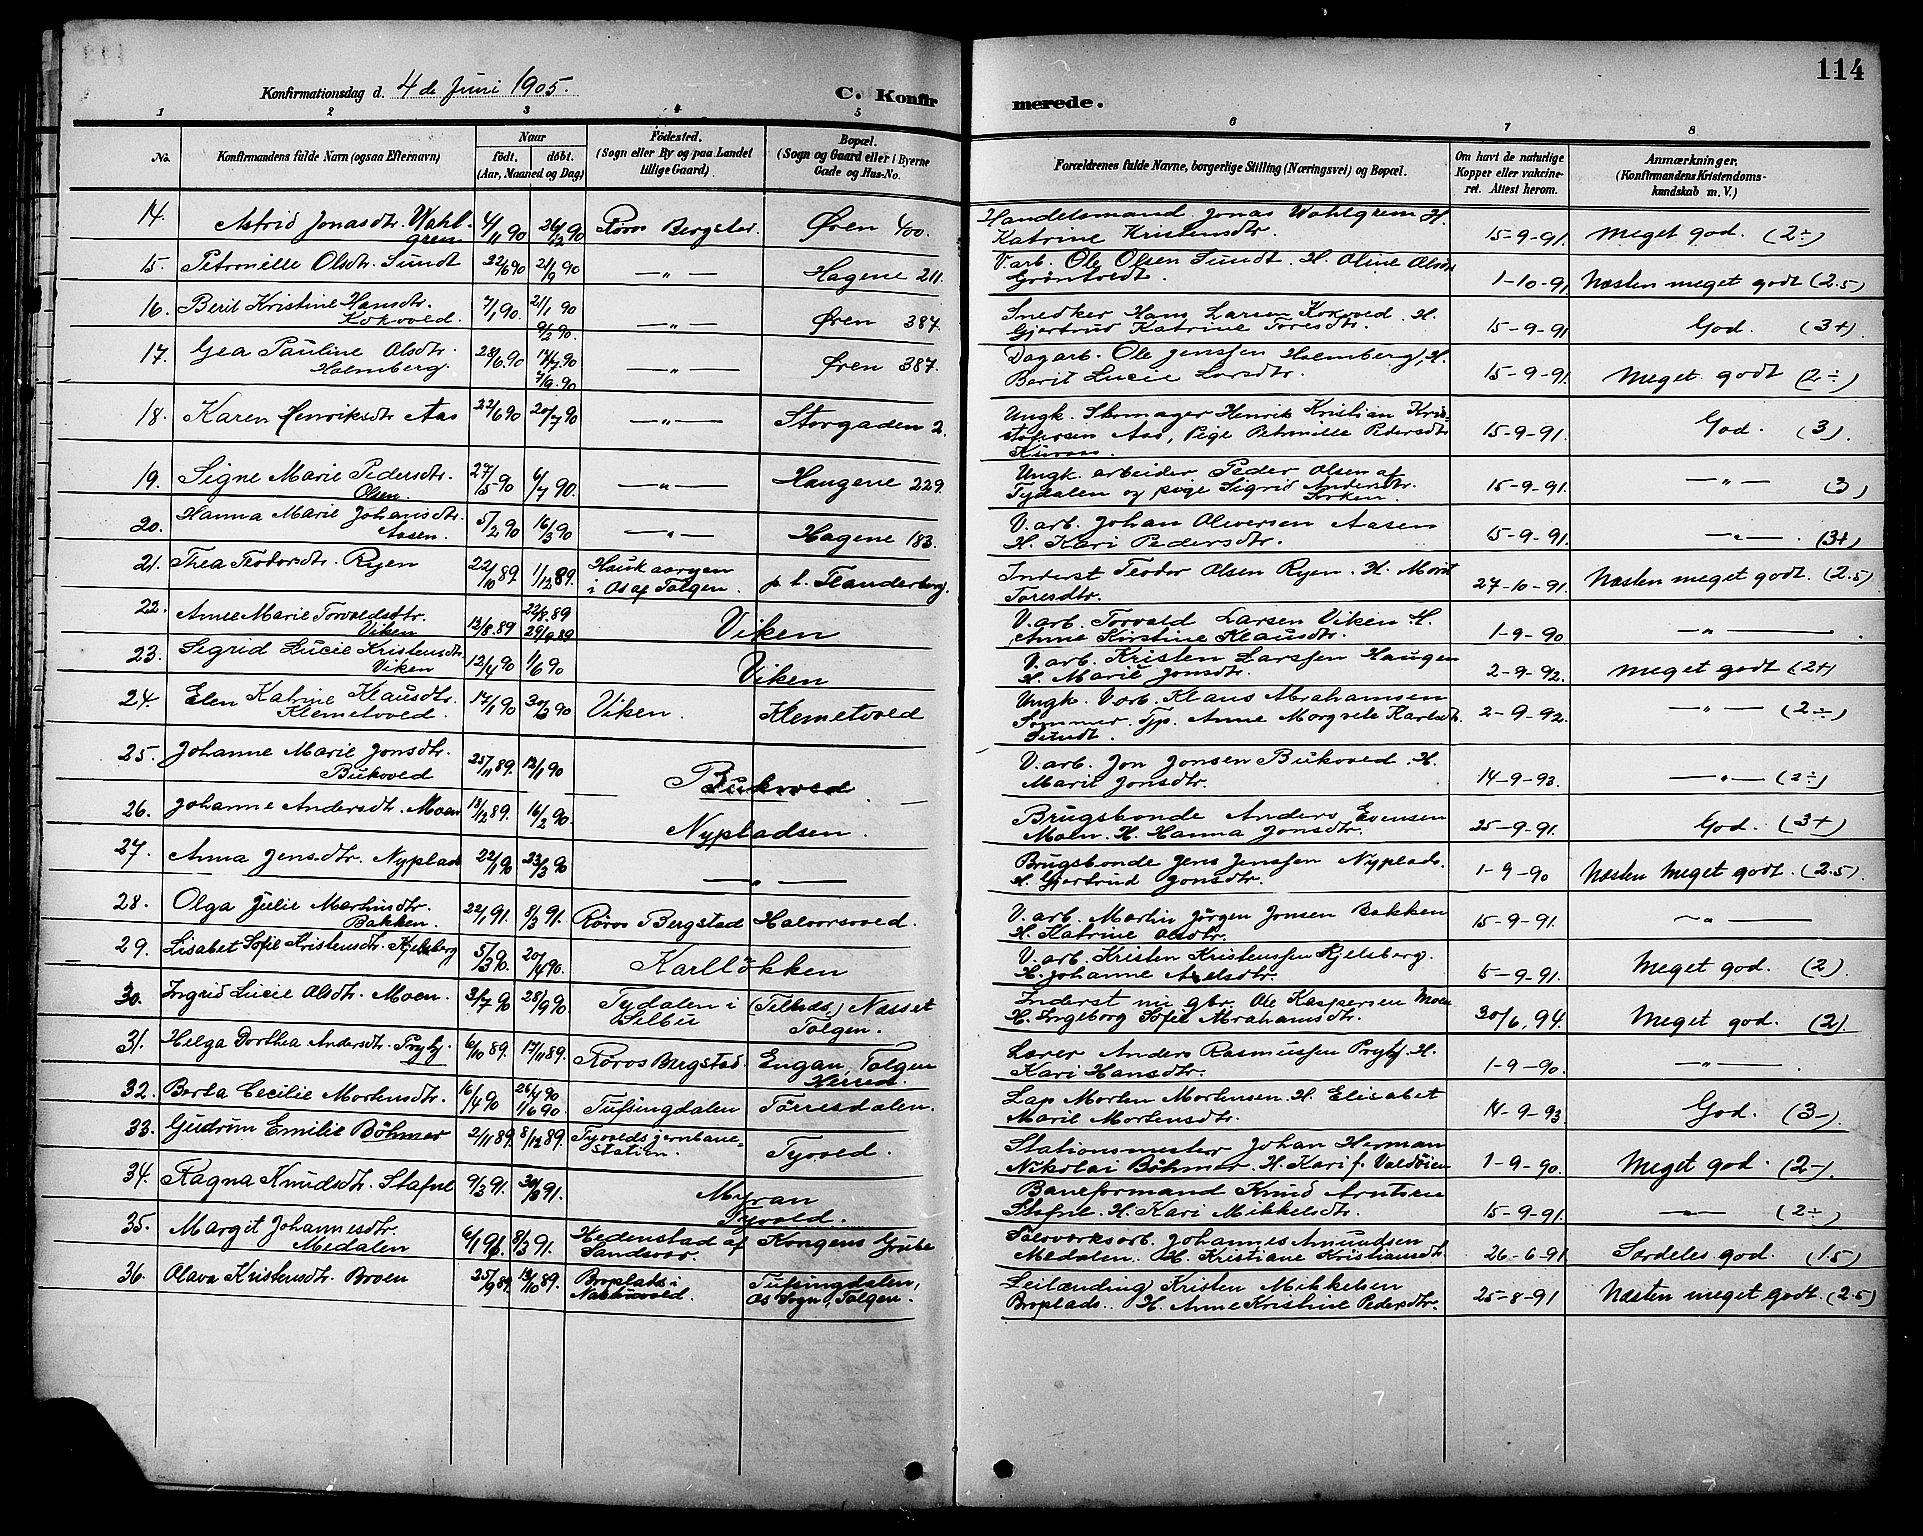 114
Konfirmationsdag d. 4de Juni 1905.
C. Konfirmerede.
1 2 3 4 5 6 7 8
No.
Konfirmandens fulde Navn (ogsaa Efternavn)
Naar
födt, döbt.
(Aar, Maaned og Dag)
Födested.
(Sogn eller By og paa Landet
tillige Gaard).
Bopæl.
(Sogn og Gaard eller i Byerne
Gade og Hus-No.
Forældrenes fulde Navne, borgerlige Stilling (Næringsvei) og Bopæl.
Om havt de naturlige
Kopper eller vakcine-
ret. Attest herom.
Anmærkninger.
(Konfirmandens Kristendoms-
kundskab m. V.)
14. Astrid Jonasdtr. Wahl- 4/11 90 26/12 90 Röros Bergstad. Øren 400. Handelsmand Jonas Wahlgren H. 15-9-91. Meget god. (2÷)
gren Katrine Kristensdtr.
15. Petronille Olsdtr. Sundt 22/6 90 21/9 90 —"— Hagene 211. V.arb. Ole Olsen Sundt. H. Oline Olsdtr 1-10-91 Næsten meget godt (2.5)
Gröntvedt.
16. Berit Kristine Hansdtr. 7/1 90. 21/1 90 —"— Øren 387. Snedker Hans Larsen Kokvold. H. 15-9-91 God. (3+)
Kokvold. 9/2 90. Gjertrud Katrine Toresdtr.
17. Gea Pauline Olsdtr. 28/6 90 14/7 90 —"— Øren 387. Dagarb. Ole Jenssen Holmberg, H. 15-9-91. Meget godt (2÷)
Holmberg. 7/9 90 Berit Lucie Larsdtr.
18. Karen Henriksdtr Aas 22/6 90 20/7 90 —"— Storgaden 2. Ungk. Skomager Henrik Kristian Kris- 15-9-91. God. (3).
tofersen Aas, Pige Petronille Pedersdtr
19. Signe Marie Pedersdtr. 27/5 90 6/7 90. —"— Haugene 229. Ungk. arbeider Peder Olsen af 15-9-91. —"— (3)
Olsen. Tydalen og pige Sigrid Andersdtr.
20. Hanna Marie Johansdtr. 5/2 90 16/3 90 —"— Hagene 183. V.arb. Johan Oliversen Aasen 15-9-91. —"—. (3+)
Aasen. H. Kari Pedersdtr.
21. Thea Teodorsdtr. Ryen 22/10 89. 1/12 89. Haukaaryen p.t. Flanderborg. Inderst Teodor Olsen Ryen. H. Marit 27-10-91. Næsten meget godt. (2.5)
i Os af Tolgen. Toresdtr.
22. Anne Marie Torvaldsdtr. 12/8.89 22/8.89 Viken V.arb. Torvald Larsen Viken H. 1-9-90 —"—.
Viken 29/9 89 Anne Kirstine Klausdtr.
23. Sigrid Lucie Kristensdtr 12/4 90 1/6 90 Viken V.arb. Kristen Larssen Haugen 2-9-92. Meget godt (2+)
Viken H. Marie Jonsdtr.
24. Elen Katrine Klausdtr. 17/1 90 30/3 90 Viken. Klemetvold Ungk. V.arb. Klaus Abrahamsen 2-9-92. —"— (2÷)
Klemetvold. Sommer. Tjp. Anne Margrete Karlsdt.
Sundt.
25. Johanne Marie Jonsdtr. 25/11 89. 12/1 90 Bukvold V.arb. Jon Jonsen Bukvold. H. 14-9-93. —"— (2÷)
Bukvold Marit Jonsdtr.
26. Johanne Andersdt. Moen 13/12 89. 16/2 90. Nypladsen. Brugsbonde Anders Evensen 25-9-91. God. (3+)
Moen. H. Hanna Jonsdtr.
27. Anna Jensdtr. Nyplads 22/1 90 23/3 90 —"— Brugsbonde Jens Jenssen Nyplads. 1-9-90 Næsten meget godt. (2.5)
H. Gjertrud Jonsdtr.
28. Olga Julie Martinsdtr. 22/1 91. 8/3 91. Röros Bergstad Halvorsvold. V.arb. Martin Jörgen Jonsen Bakken 15-9-91. —"—
Bakken. H. Katrine Olsdtr.
29. Lisabet Sofie Kristensdtr. Kjelsberg 5/3 90. 20/4 90. Karllökken V.arb. Kristen Kristenssen Kjelsberg. 5-9-91. Meget god. (2).
H. Johanne Axelsdtr.
30. Ingrid Lucie Olsdtr. Moen. 3/7 90 28/9 90 Tydalen i (Tilhds.) Næsset Inderst nu gbr. Ole Kaspersen Moen 30/6, 94. Meget god. (2)
Selbu Tolgen. H. Ingeborg Sofie Abrahamsdtr.
31. Helga Dorthea Andersdtr. Prytz. 6/10 89. 17/11 89. Röros Bergstad. Engan, Tolgen Lærer Anders Rasmussen Prytz. H. 1-9-90. —"—.
Herred. Kari Hansdtr.
32. Berta Cecilie Mortensdtr. 16/4 90 26/4 90 Tufsingdalen Törresdalen. Lap Morten Mortensen. H. Elisabet 14-9-93 God. (3-).
1/6 90. Marit Mortensdtr.
33. Gudrun Emilie Böhmer 2/11 89. 8/12 89. Tyvolds jernbane- Tyvold. Stationsmester Johan Herman 1-9-90. Meget god. (2-)
station. Nikolai Böhmer. H. Kari f. Valdöien
34. Ragna Knudsdtr. Stafne 9/3 91. 30/3 91. Myran Baneformand Knud Arntsen 15-9-91. —"— (2÷)
Tyvold. Stafne. H. Kari Mikkelsdtr.
35. Margit Johannesdtr. 6/1 91. 8/3 91. Hedenstad af Kongens Grube Sölvverksarb. Johannes Amundsen 26-6-91. Særdeles god. (1.5)
Medalen Sandsvær. Medalen. H. Kristiane Kristiansdt.
36. Olava Kristensdtr. Broen 25/9 89. 13/10 89. Broplads i Tufsingdalen, Leilænding Kristen Mikkelsen 25-8-91 Næsten meget godt. (2.5)
Narbuvold. Os Sogn, Tolgen. Broplads. H. Anne Kristine Pedersdtr.